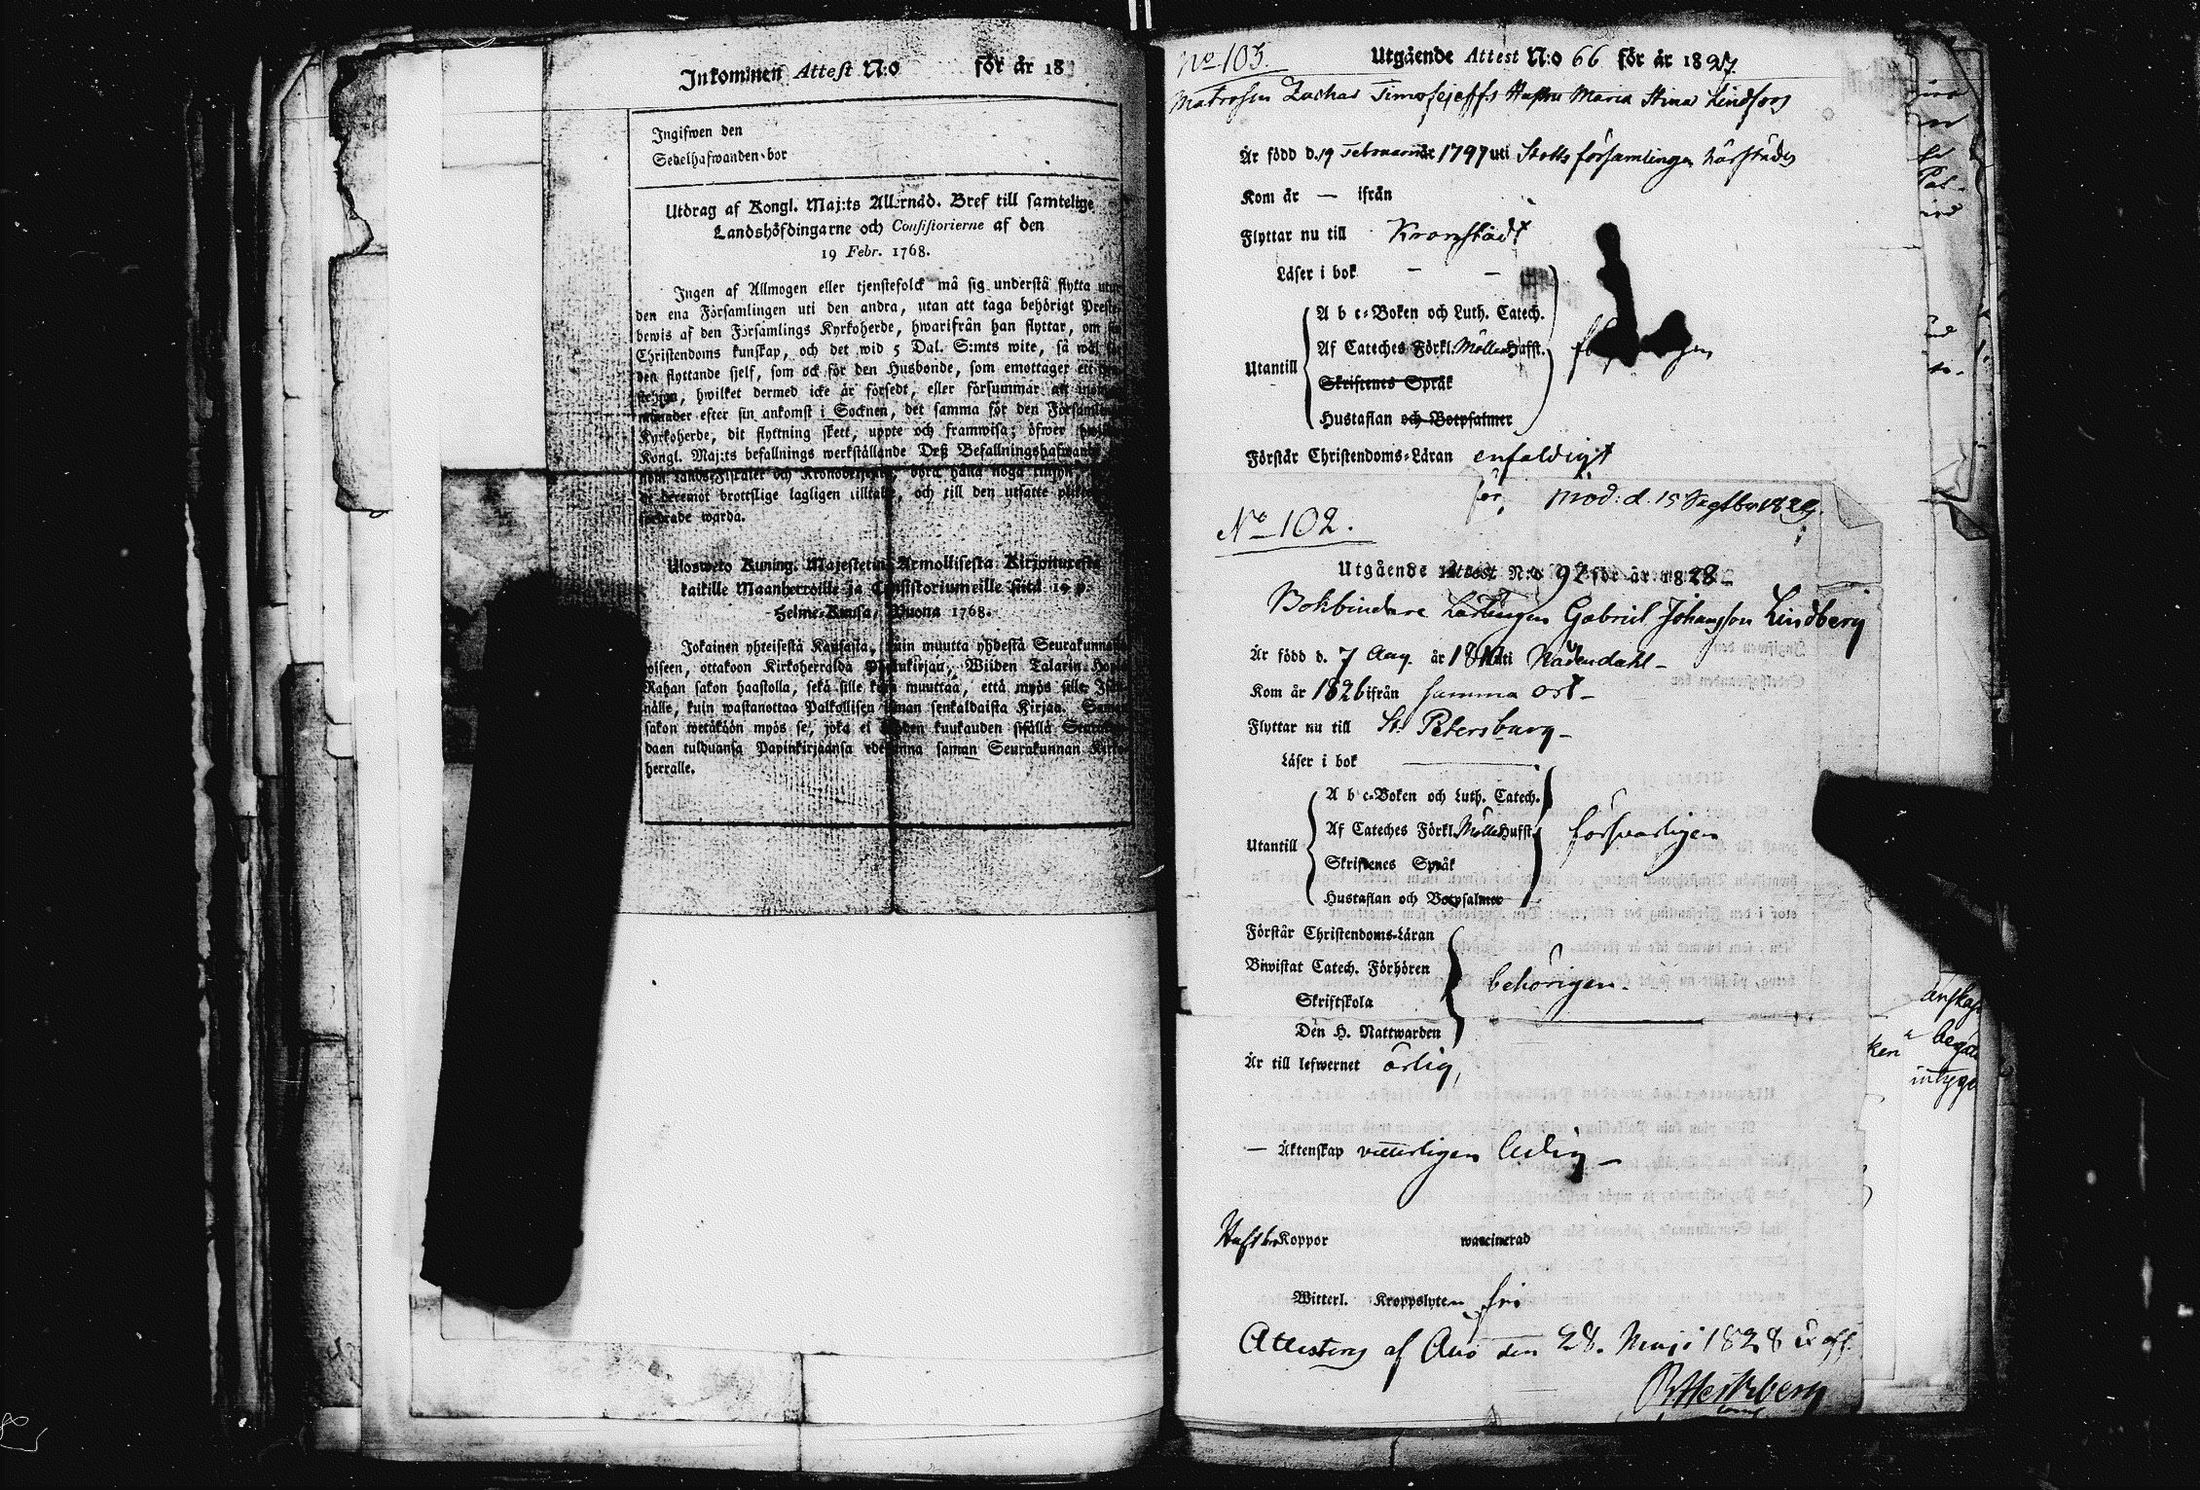 Inkommen Attest N:o för år 18
Ingifwen den
Sedelhafwanden bor
Utdrag af Kongl. Maj:ts Allernåd. Bref till samtelige
Landshöfdingarne och Consistorierne af den
19 Febr. 1768.
Ingen af Allmogen eller tjenstefolck må sig understå flytta utur
den ena Församlingen uti den andra, utan att taga behörigt Preste-
bewis af den Församlings Kyrkoherde, hwarifrån han flyttar, om sin
Christendoms kunskap, och det wid 5 Dal. S:mts wite, så wäl för
den flyttande sjelf, som ock för den Husbonde, som emottager ett
hwilket dermed icke är försedt, eller försummar att inom
månader efter sin ankomst i Socknen, det samma för den Församlings
Kyrkoherde, dit flyttning skett, uppte och framwisa; öfwer
Kongl. Maj:ts befallnings werkställande Deß Befallningshafwande
som Lands-Fiskaler och Kronobetjente, böra hafwa noga tillsyn
deremot brottslige lagligen tilltala, och till den utsatte
warda.
Ulosweto Kuning. Majestetin Armollisesta Kirjoituresta
kaikille Maanherroille ja Consistoriumeille siitä 19 p.
Helme-Kuussa, Wuona 1768.
Jokainen yhteisestä Kansasta, kuin muutta yhdestä Seurakunnasta
toiseen, ottakoon Kirkoherralda Wiiden Talarin Hopia
Rahan sakon haastolla, sekä sille kuin muuttaa, että myös sille Isän-
nälle, kuin wastanottaa Palkollisen ilman senkaldaista Kirjaa. Saman
sakon wetäköön myös se, joka ei kuukauden sisällä Seurakun-
daan tulduansa Papinkirjaansa saman Seurakunnan Kirko-
herralle.
No 103. Utgående Attest N:o 66 för år 1827.
Matrosen Zachar Timofejeffs Hustru Maria Stina Lindfors
Är född d. 19 Februarii år 1797 uti Slotts församlingen härstädes
Kom år — ifrån
Flyttar nu till Kronstadt
Läser i bok — —
A b c-Boken och Luth. Catech.
Af Cateches Förkl. Möllers Hufft.
Utantill
Skriftenes Språk
Hustaflan och Botpsalmer
Förstår Christendoms-Läran enfaldigt
för, mod: d. 15 Septber
No 102.
Utgående Attest N:o 92 för år 1828
Bokbindare Lärlingen Gabriel Johansson Lindberg
Är född d. 7 Aug. år uti Nådendahl
Kom år 1826 ifrån samma ort
Flyttar nu till St. Petersburg
Läser i bok
A b c-Boken och Luth. Catech.
Af Cateches Förkl. Möllers Hufft. försvarligen
Utantill
Skriftenes Språk
Hustaflan och Botpsalmer
Förstår Christendoms-Läran
Biwistat Catech. Förhören
behörigen.
Skriftskola
Den H. Nattwarden
Är till lefwernet ärlig,
— Äktenskap vitterligen ledig —
Haft Koppor waccinerad
Witterl. Kroppslyten fri
Attesteras af Åbo den 28. Maji 1828 ex off.